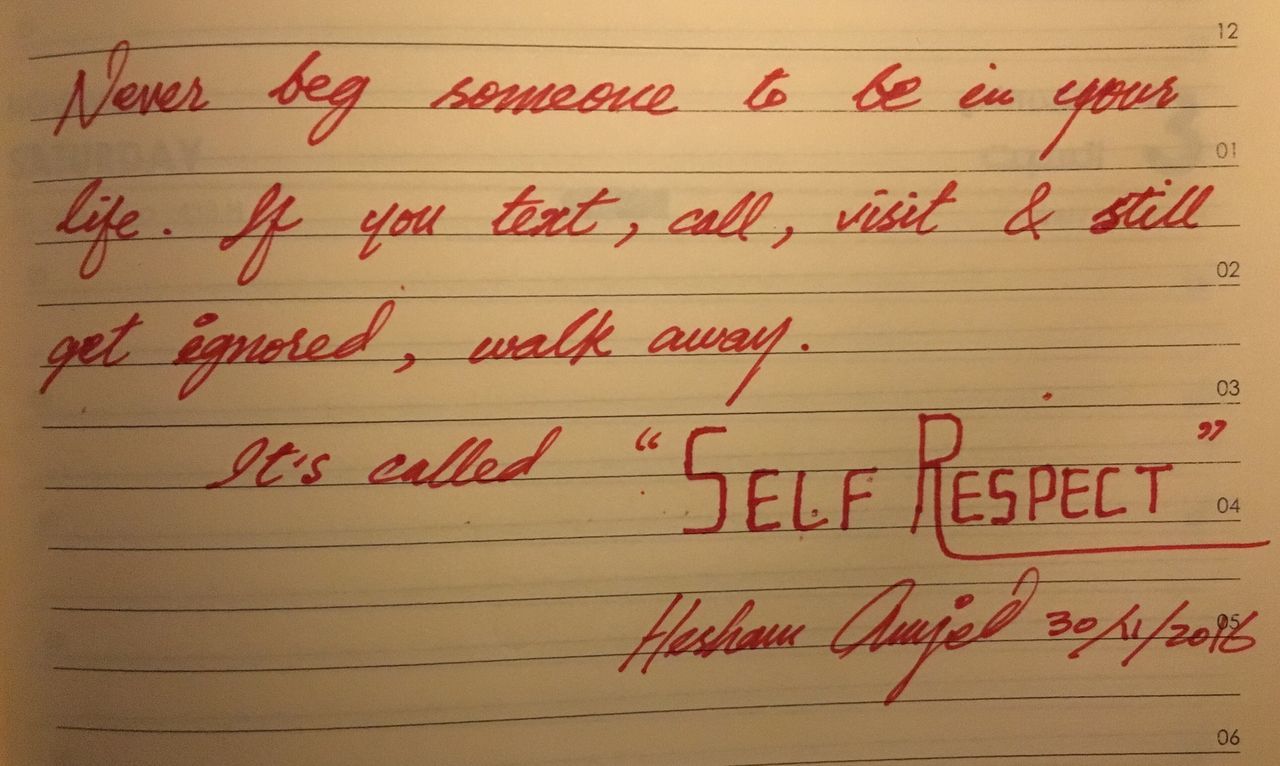 12
Never beg someone to be in your
01
life. If you text, call, visit & still
02
get ignored, walk away.
03
It's called "SELF RESPECT"
04
Hesham Amjed 30/11/2016
05
06